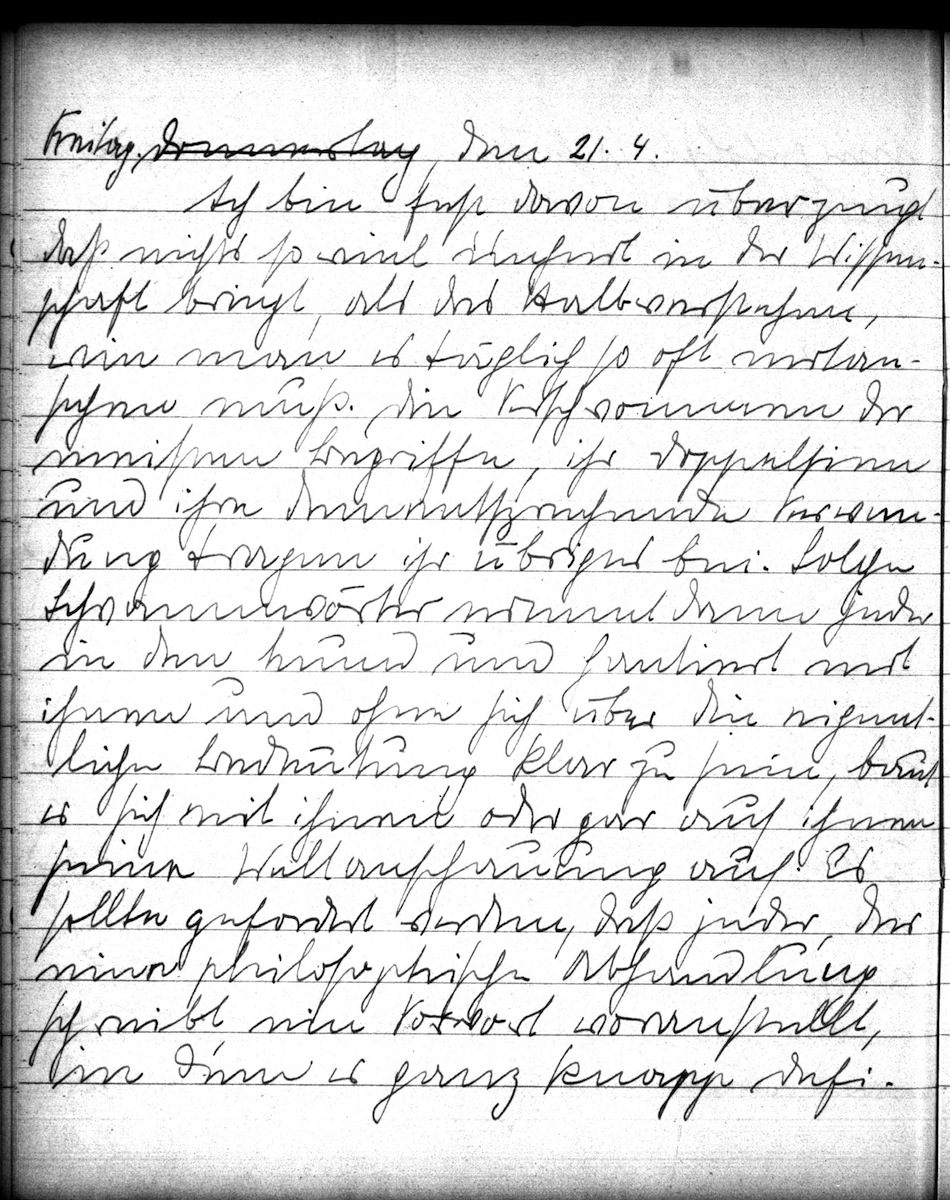 Freitag, Donnerstag, den 21. 4.
Ich bin fest davon überzeugt
daß nichts so viel Unheil in der Wissen-
schaft bringt, als das Halbverstehen,
wie man es täglich so oft mitan-
sehen muß. Die Verschwommenen der
meisten Begriffe, ihr Doppelsinn
und ihre dementsprechende Verwen-
dung tragen ihr übriges bei. Solche
Schwammwörter nimmt dann jeder
in den Mund und hantiert mit
ihnen und ohne sich über die eigent-
liche Bedeutung klar zu sein, baut
er sich mit ihnen oder gar auf ihnen
seine Weltanschauung auf. Es
sollte gefordert werden, daß jeder, der
eine philosophische Abhandlung
schreibt ein Vorwort voranstellt,
in dem er ganz knapp defi-